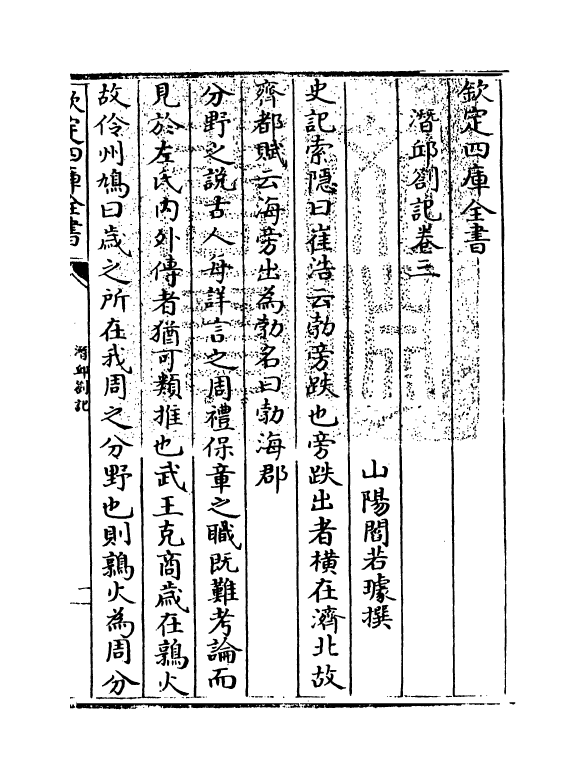 欽定四庫全書
潛邱劄記卷三
山陽閻若璩撰
史記索隱曰崔浩云勃旁跌也旁跌出者橫在濟北故
齊都賦云海旁出為勃名曰勃海郡
分野之說古人每詳言之周禮保章之職既難考論而
見於左氏內外傳者猶可類推也武王克商歲在鶉火
故伶州鳩曰歲之所在我周之分野也則鶉火為周分
欽定四庫全書
潛邱劄記